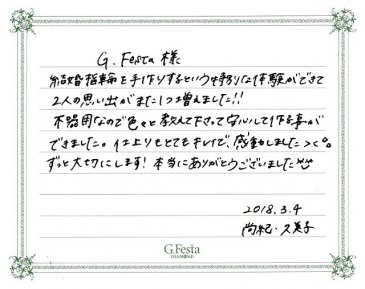 G. Festa 様
結婚指輪を手作りするという特別な体験ができて
2人の思い出がまた1つ増えました!!
不器用なので色々と教えて下さって安心して作る事が
できました。仕上りもとてもキレイで、感動しました
ずっと大切にします!本当にありがとうございました
2018.3.4
尚紀・久美子
G.Festa
DIAMOND